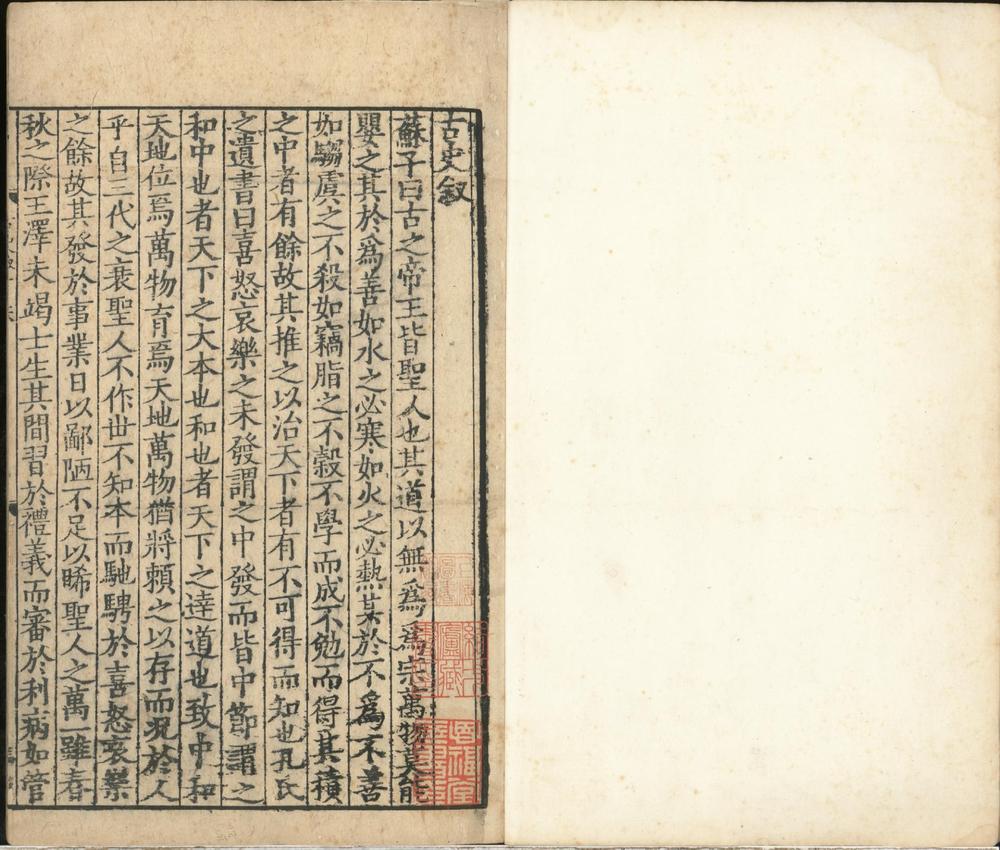 古史敘
蘇子曰古之帝王皆聖人也其道以無爲爲宗萬物莫能
嬰之其於爲善如水之必寒如火之必熱其於不爲不善
如騶虞之不殺如竊脂之不穀不學而成不勉而得其積
之中者有餘故其推之以治天下者有不可得而知也孔氏
之遺書曰喜怒哀樂之未發謂之中發而皆中節謂之
和中也者天下之大本也和也者天下之達道也致中和
天地位焉萬物育焉天地萬物猶將賴之以存而況於人
乎自三代之衰聖人不作世不知本而馳騁於喜怒哀樂
之餘故其發於事業日以鄙陋不足以睎聖人之萬一雖春
秋之際王澤未竭士生其間習於禮義而審於利病如管